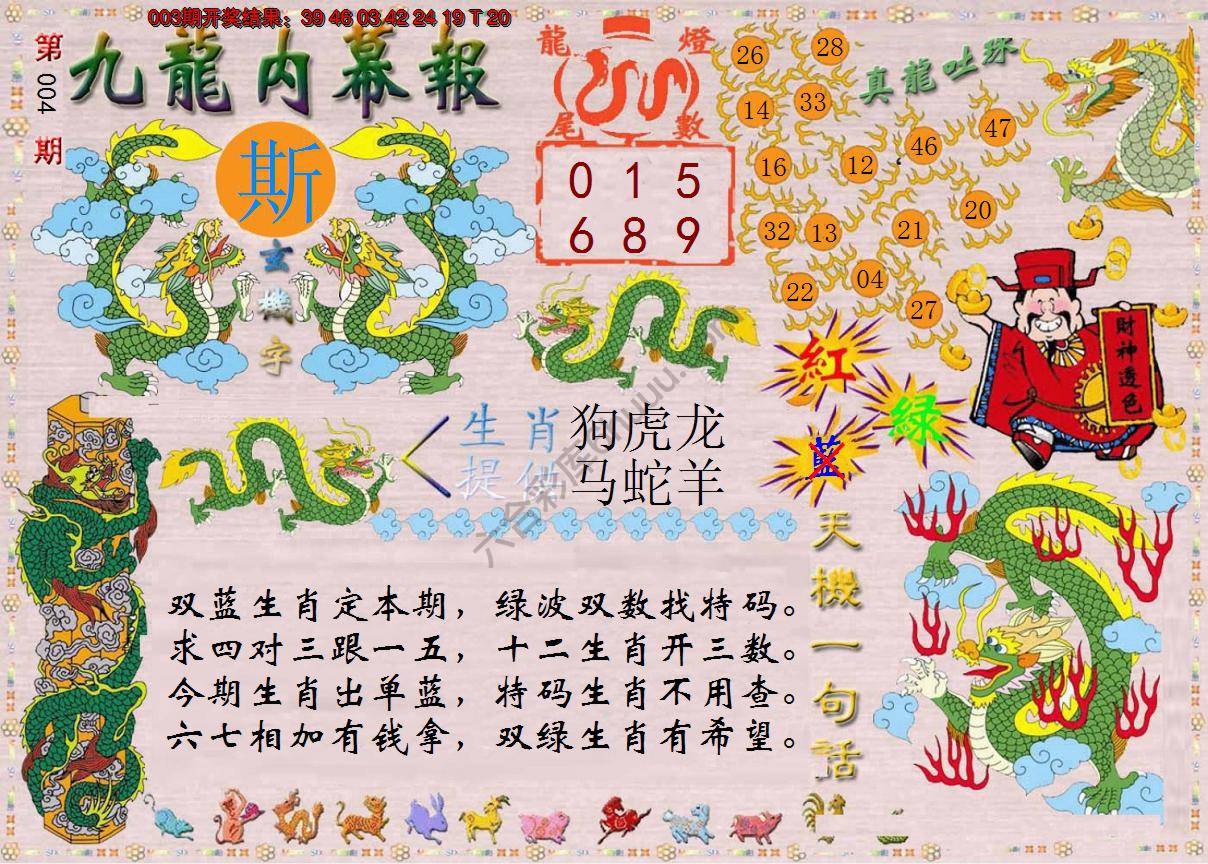 003期开奖结果：39 46 03 42 24 19 T 20
第004期
九龍内幕報
斯
玄機字
龍燈
尾數
0 1 5
6 8 9
真龍吐珠
26 28
14 33
16 12 46 47
32 13 21 20
22 04 27
紅
綠
藍
財神透色
生肖提供
狗虎龙
马蛇羊
双蓝生肖定本期，绿波双数找特码。
求四对三跟一五，十二生肖开三数。
今期生肖出单蓝，特码生肖不用查。
六七相加有钱拿，双绿生肖有希望。
天機一句話